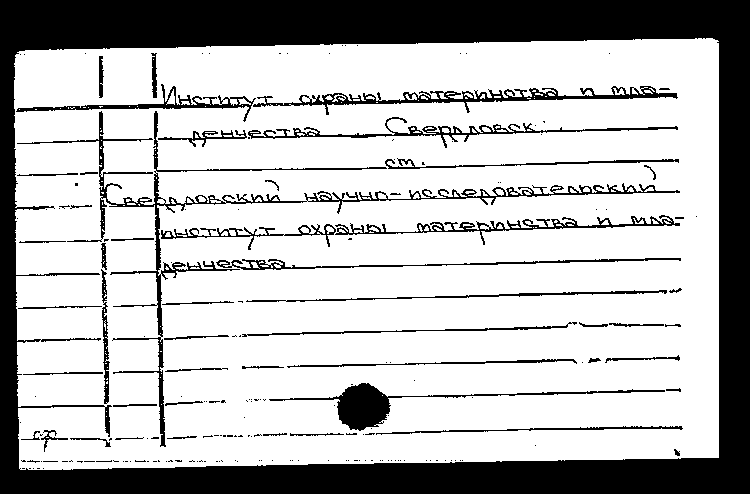 Институт охраны материнства и мла-
денчества. Свердловск.
см.
Свердловский научно-исследовательский
институт охраны материнства и мла-
денчества.